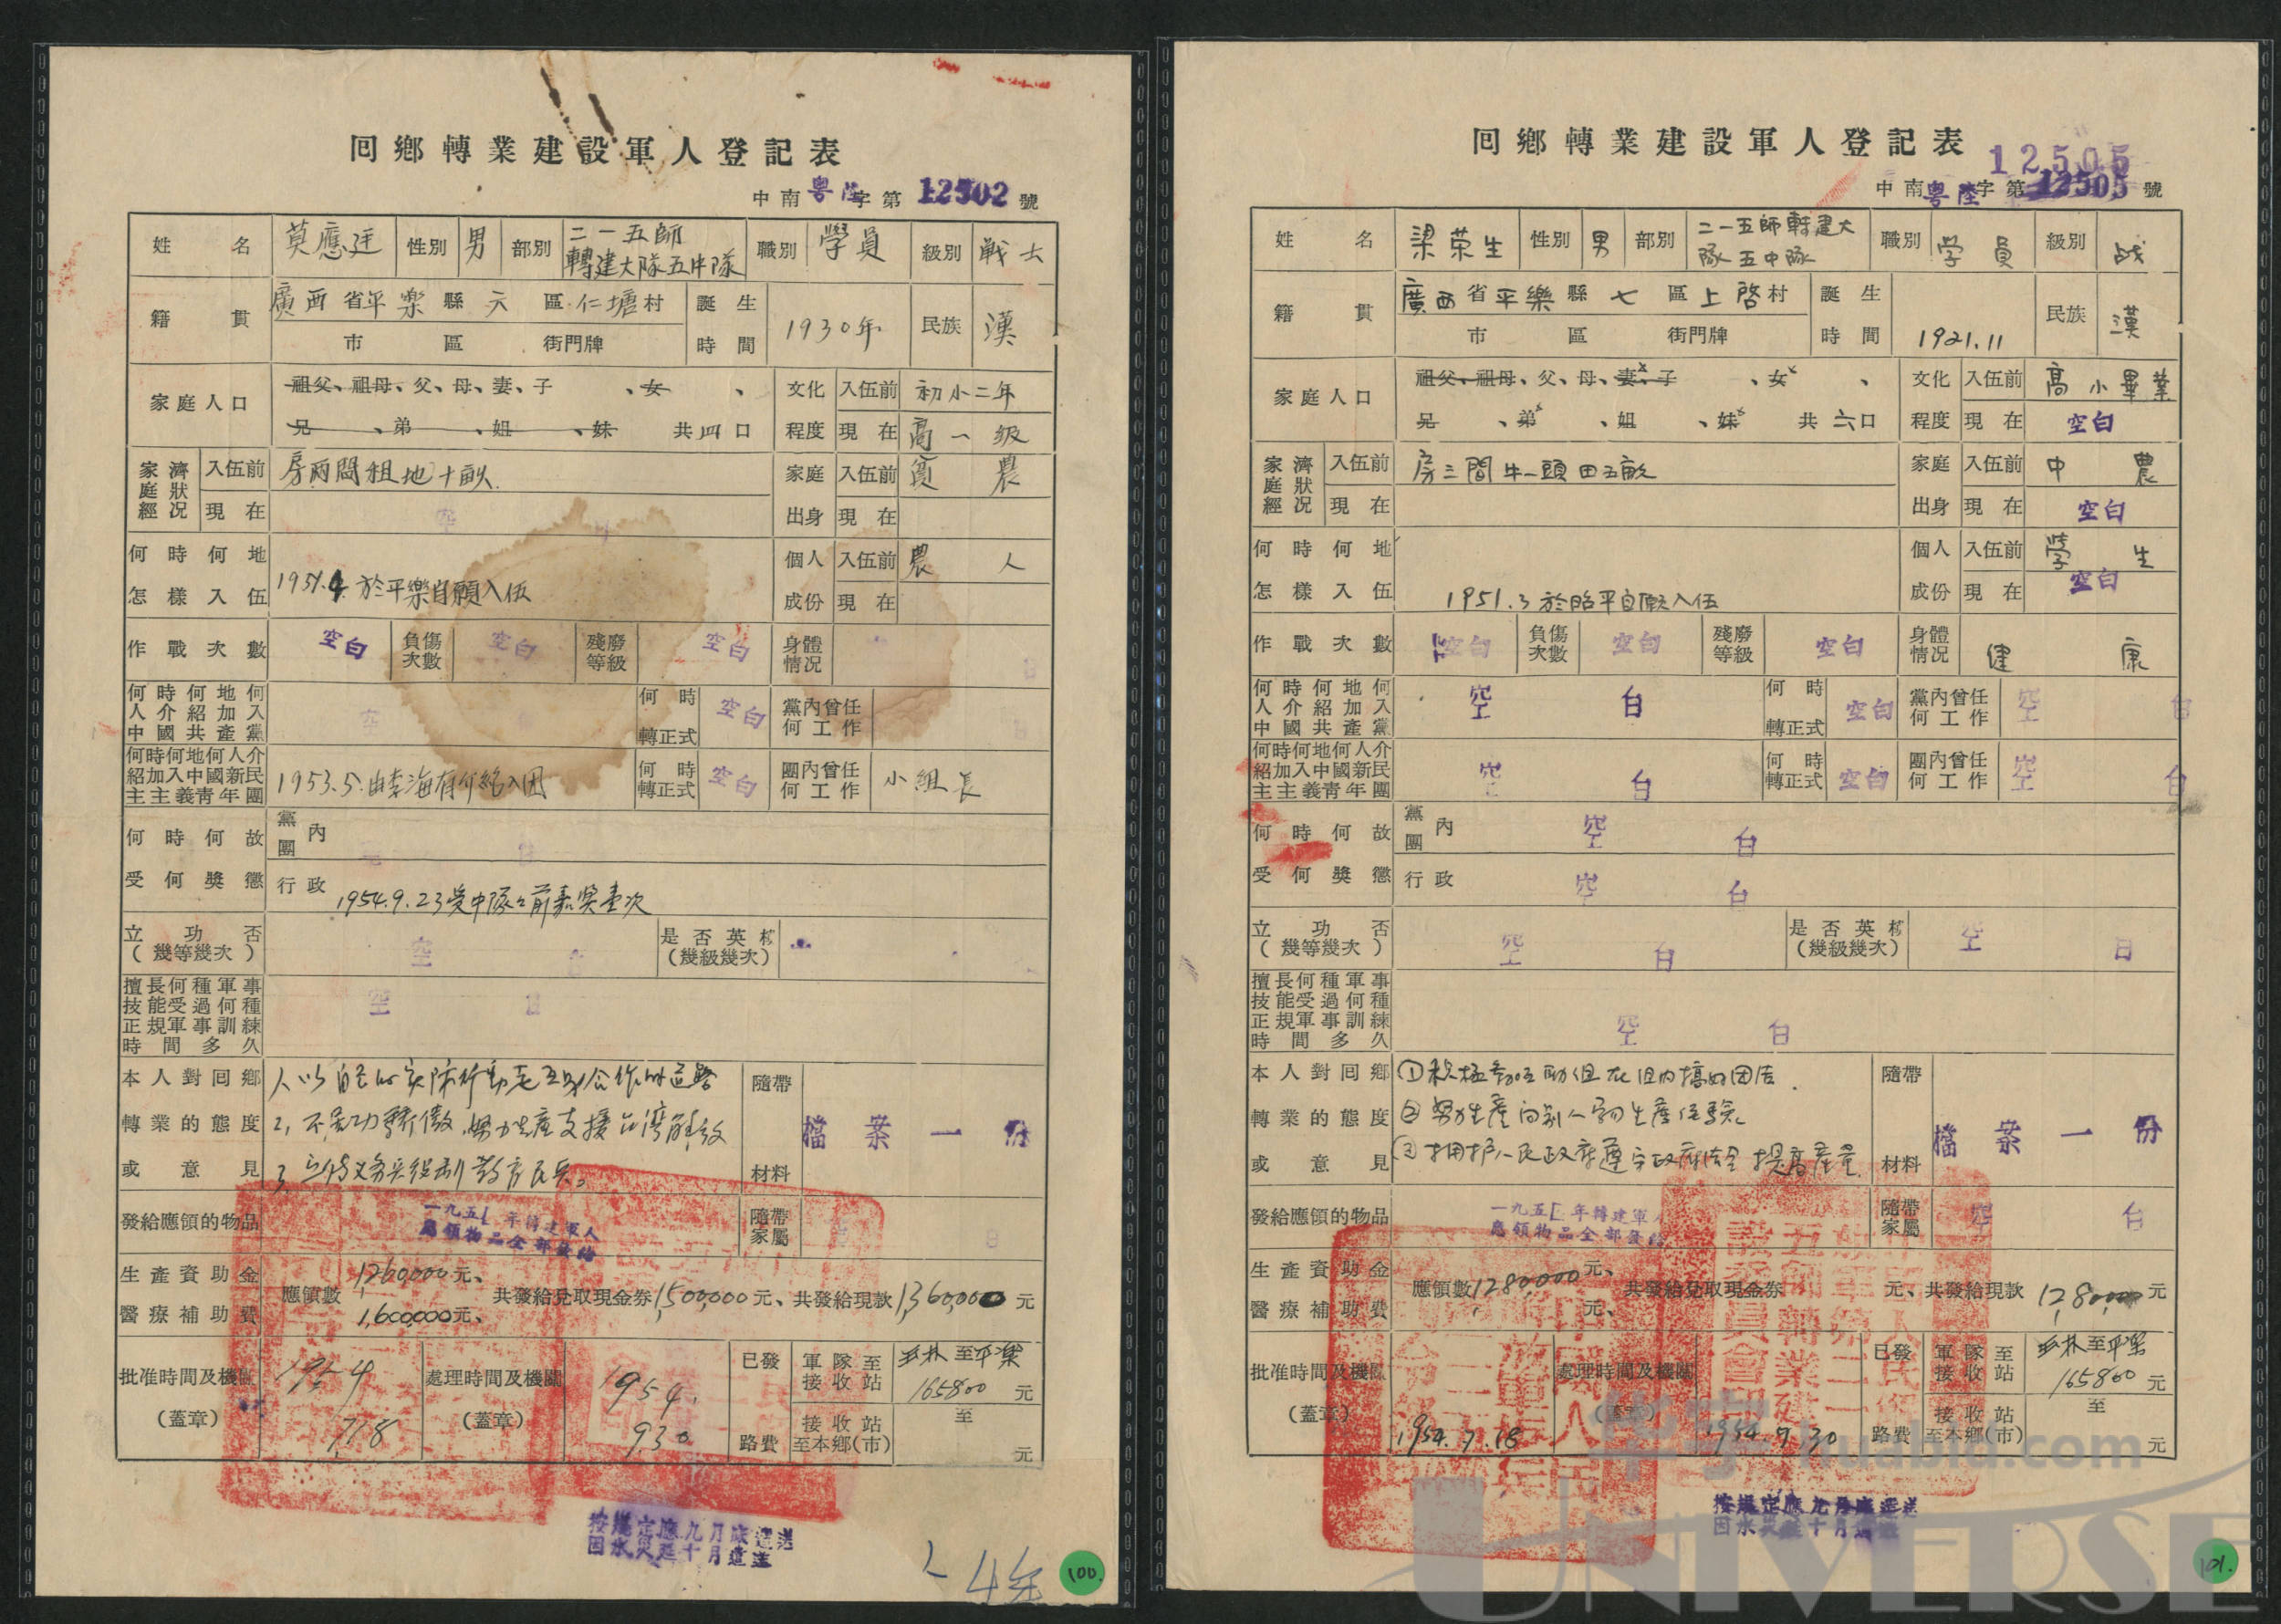 回鄉轉業建設軍人登記表
中南粵陸字第12502號
姓名 莫應廷 性別 男 部別 二一五師轉建大隊五中隊 職別 學員 級別 戰士
籍貫 廣西省平樂縣六區仁塘村 誕生時間 1930年 民族 漢
市 區 街門牌
家庭人口 祖父、祖母、父、母、妻、子 、女 、
兄 、弟 、姐 、妹 共四口
文化程度 入伍前 初小二年
現在 高一級
家庭經濟狀況 入伍前 房兩間租地十畝
現在 空白
家庭出身 入伍前 貧農
現在
何時何地怎樣入伍 1951.4.於平樂自願入伍
個人成份 入伍前 農人
現在
作戰次數 空白 負傷次數 空白 殘廢等級 空白 身體情况
何時何地何人介紹加入中國共產黨 空 何時轉正式 空白 黨內曾任何工作
何時何地何人介紹加入中國新民主主義靑年團 1953.5.由李海有介紹入团 何時轉正式 空白 團內曾任何工作 小組長
何時何故受何獎懲 黨團內
行政 1954.9.23受中隊口前嘉奖壹次
立功否(幾等幾次) 空白 是否英模(幾級幾次)
擅長何種軍事技能受過何種正規軍事訓練時間多久 空白
本人對回鄉轉業的態度或意見
2,不居功驕傲.努力生產支援台湾解放
隨帶材料 檔案一份
發給應領的物品 一九五 年轉建軍人應領物品全部發給 隨帶家屬
生產資助金 應領數 1,260,000元、
醫療補助費 1,600,000元、
共發給兌取現金券1,500,000元、共發給現款1,360,000元
批准時間及機關(蓋章) 1954 7.18 處理時間及機關(蓋章) 1954. 930
已發路費 軍隊至接收站 玉林至平樂 165800元
接收站至本鄉(市) 至 元
按規定應九月底運送
因水災延十月運送
4年
100.
回鄉轉業建設軍人登記表
12505
中南粵陸字第12505號
姓名 梁荣生 性別 男 部別 二一五師轉建大隊五中隊 職別 学員 級別 战
籍貫 廣西省平樂縣七區上啓村 誕生時間 1921.11 民族 漢
市 區 街門牌
家庭人口 祖父、祖母、父、母、妻、子 、女 、
兄 、弟 、姐 、妹 共六口
文化程度 入伍前 高小畢業
現在 空白
家庭經濟狀況 入伍前 房三間牛一頭田五畝
現在
家庭出身 入伍前 中農
現在 空白
何時何地怎樣入伍 1951.3於昭平自願入伍
個人成份 入伍前 學生
現在 空白
作戰次數 空白 負傷次數 空白 殘廢等級 空白 身體情况 健康
何時何地何人介紹加入中國共產黨 空白 何時轉正式 空白 黨內曾任何工作 空白
何時何地何人介紹加入中國新民主主義靑年團 空白 何時轉正式 空白 團內曾任何工作 空白
何時何故受何獎懲 黨團內 空白
行政 空白
立功否(幾等幾次) 空白 是否英模(幾級幾次) 空白
擅長何種軍事技能受過何種正規軍事訓練時間多久 空白
本人對回鄉轉業的態度或意見 ①积極參加互助组在组内搞好团结.
②努力生產向别人學習生產经驗
③拥护人民政府遵守政府法令提高產量
隨帶材料 檔案一份
發給應領的物品 一九五 年轉建軍人應領物品全部發給 隨帶家屬 空白
生產資助金 應領數1280,000元、
醫療補助費 元、
共發給兌取現金券 元、共發給現款 1,280,000元
批准時間及機關(蓋章) 1954.7.18 處理時間及機關(蓋章) 1954.9.30
已發路費 軍隊至接收站 玉林至平樂 165800元
接收站至本鄉(市) 至 元
按規定應九月底運送
因水災延十月運送
101.
华宇 huabid.com
UNIVERSE